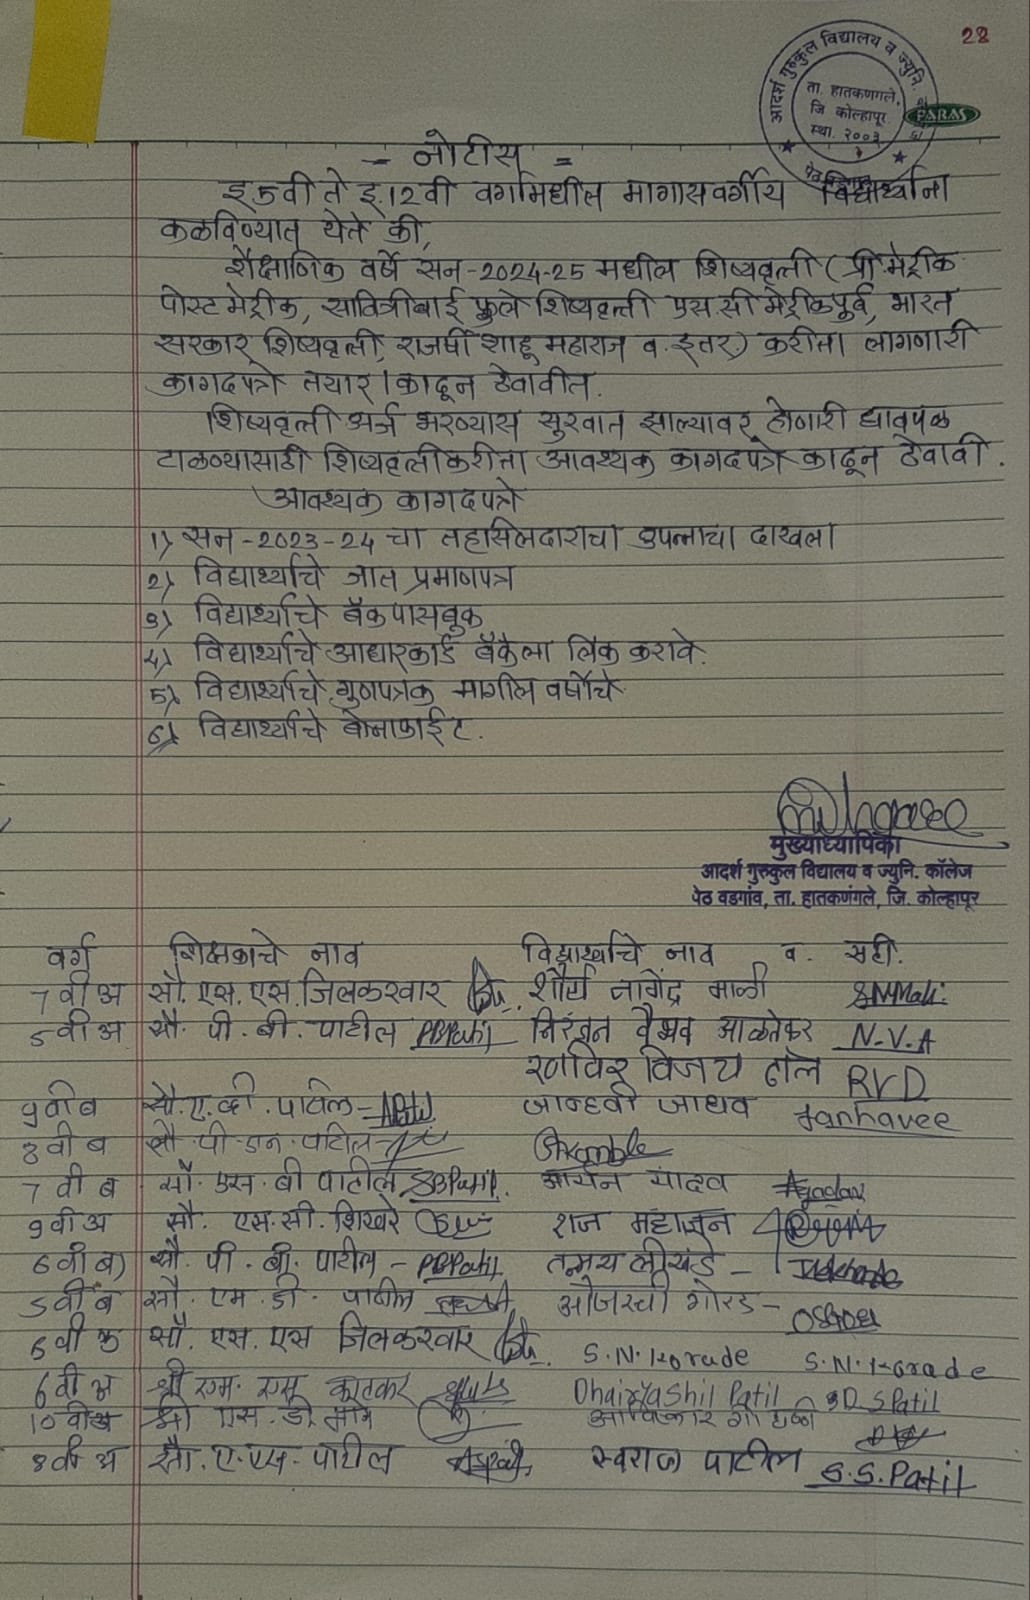 28
आदर्श गुरुकुल विद्यालय व ज्युनि.
ता. हातकणंगले,
जि कोल्हापूर
स्था. २००३
PARAS
- नोटीस =
इ.5वी ते इ.12वी वर्गामधील मागासवर्गीय विद्यार्थ्यांना
कळविण्यात येते की,
शैक्षणिक वर्षे सन-2024-25 मधील शिष्यवृत्ती (प्री मेट्रीक
पोस्ट मेट्रीक, सावित्रीबाई फुले शिष्यवृत्ती एस.सी मेट्रीकपुर्व, भारत
सरकार शिष्यवृत्ती, राजर्षी शाहू महाराज व इतर) करीता लागणारी
कागदपत्रे तयार । काढून ठेवावीत.
शिष्यवृत्ती अर्ज भरण्यास सुरवात झाल्यावर होणारी धावपळ
टाळण्यासाठी शिष्यवृत्तीकरीता आवश्यक कागदपत्रे काढून ठेवावी.
आवश्यक कागदपत्रे
1) सन-2023-24 चा तहसिलदाराचा उपन्नाचा दाखला
2) विद्यार्थ्याचे जात प्रमाणपत्र
3) विद्यार्थ्याचे बँक पासबुक
4) विद्यार्थ्याचे आधारकार्ड बँकेला लिंक करावे.
5) विद्यार्थ्याचे गुणपत्रक मागील वर्षाचे
6) विद्यार्थ्याचे बोनाफाईट.
मुख्याध्यापिका
आदर्श गुरुकुल विद्यालय व ज्युनि. कॉलेज
पेठ वडगांव, ता. हातकणंगले, जि. कोल्हापूर
वर्ग शिक्षकाचे नाव विद्यार्थ्याचे नाव व. सही.
7 वी अ सौ. एस. एस. जिलकरवार शौर्य नागेंद्र माळी SNMali
5 वी अ सौ. पी. बी. पाटील PBPatil निरंजन वैभव आळतेकर N.V.A
रणविर विजय ढोले RVD
9वी ब सौ. ए. व्ही. पाटील जान्हवी जाधव Janhavee
8 वी ब सौ पी एन पाटील
7 वी ब सौ. एस. बी पाटील SBPatil. आर्यन यादव Ayadav
9वी अ सौ. एस. सी. शिखरे राज महाजन
6 वी ब) सौ. पी. बी. पाटील - PBPatil तन्मय लोखंडे -
5वी ब सौ. एम. डी. पाटील ओजस्वी गोरड -
6 वी क सौ. एस. एस जिलकरवार S.N. Korade S.N. Korade
6 वी अ श्री एम. एस. काटकर Dhairyashil Patil D S Patil
10 वी अ श्री एस. डी. माने
8 वी अ सौ. ए. एस. पाटील स्वराज पाटील S.S. Patil